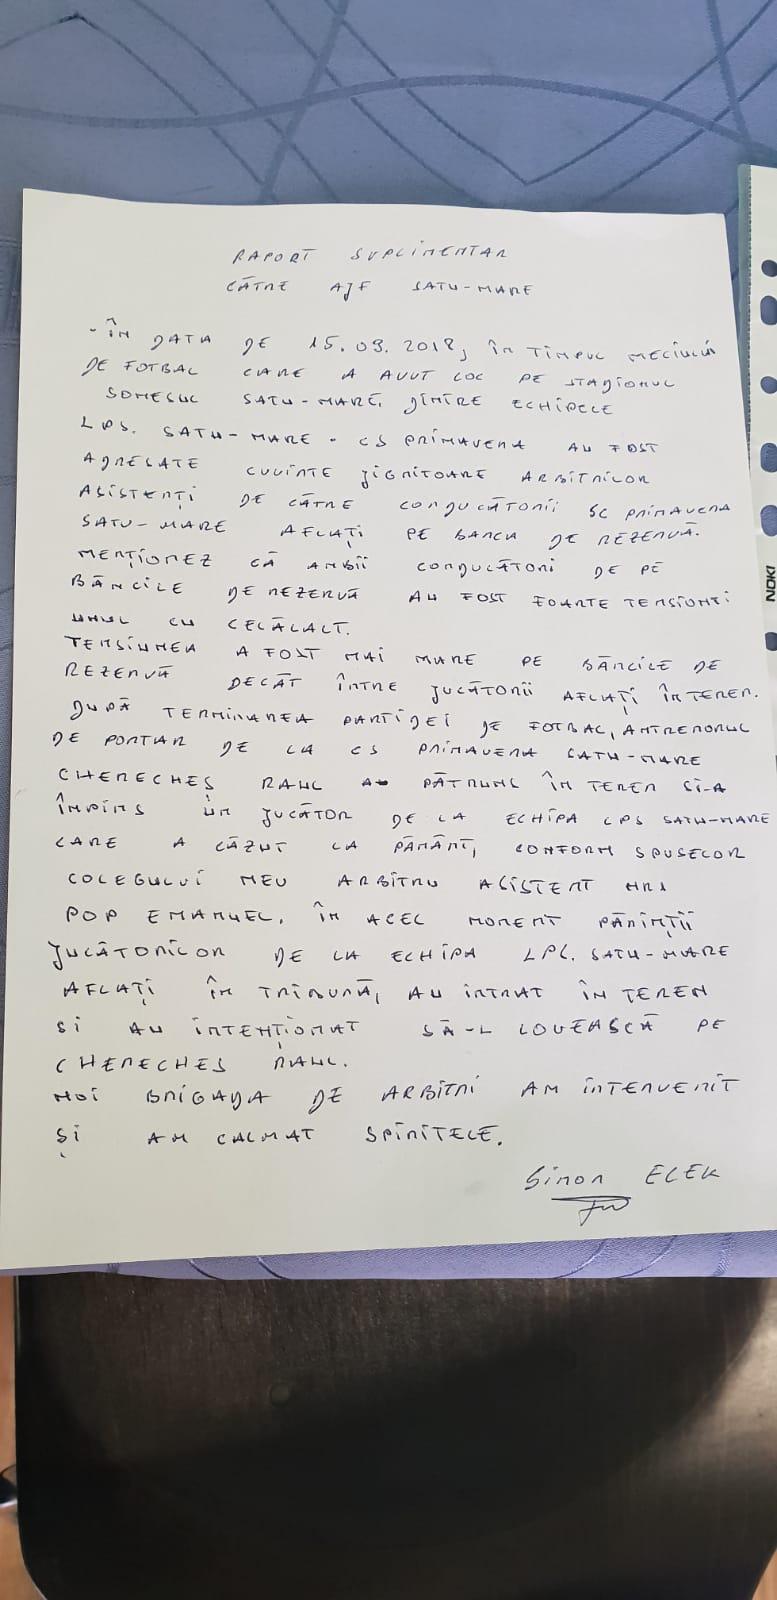 RAPORT SUPLIMENTAR
CĂTRE AJF SATU-MARE
- ÎN DATA DE 15.09.2018, ÎN TIMPUL MECIULUI
DE FOTBAL CARE A AVUT LOC PE STADIONUL
SOMESUL SATU-MARE, DINTRE ECHIPELE
LPS. SATU-MARE - CS PRIMAVERA AU FOST
ADRESATE CUVINTE JIGNITOARE ARBITRILOR
ASISTENȚI DE CĂTRE CONDUCĂTORII SC PRIMAVERA
SATU-MARE AFLAȚI PE BANCA DE REZERVĂ.
MENȚIONEZ CĂ AMBII CONDUCĂTORI DE PE
BĂNCILE DE REZERVĂ AU FOST FOARTE TENSIONTI
UNUL CU CELĂLALT.
TENSIUNEA A FOST MAI MARE PE BĂNCILE DE
REZERVĂ DECÂT ÎNTRE JUCĂTORII AFLAȚI ÎN TEREN.
DUPĂ TERMINAREA PARTIDEI DE FOTBAL, ANTRENORUL
DE PORTAR DE LA CS PRIMAVERA SATU-MARE
CHERECHES RAUL A PĂTRUNS ÎN TEREN SI-A
ÎMPINS UN JUCĂTOR DE LA ECHIPA LPS SATU-MARE
CARE A CĂZUT LA PĂMÂNT, CONFORM SPUSELOR
COLEGULUI MEU ARBITRU ASISTENT NR1
POP EMANUEL. ÎN ACEL MOMENT PĂRINȚII
JUCĂTORILOR DE LA ECHIPA LPS. SATU-MARE
AFLAȚI ÎN TRIBUNĂ, AU INTRAT ÎN TEREN
SI AU INTENȚIONAT SĂ-L LOVEASCĂ PE
CHERECHES RAUL.
NOI BRIGADA DE ARBITRI AM INTERVENIT
ȘI AM CALMAT SPIRITELE.
Simon ELEK
NOKI